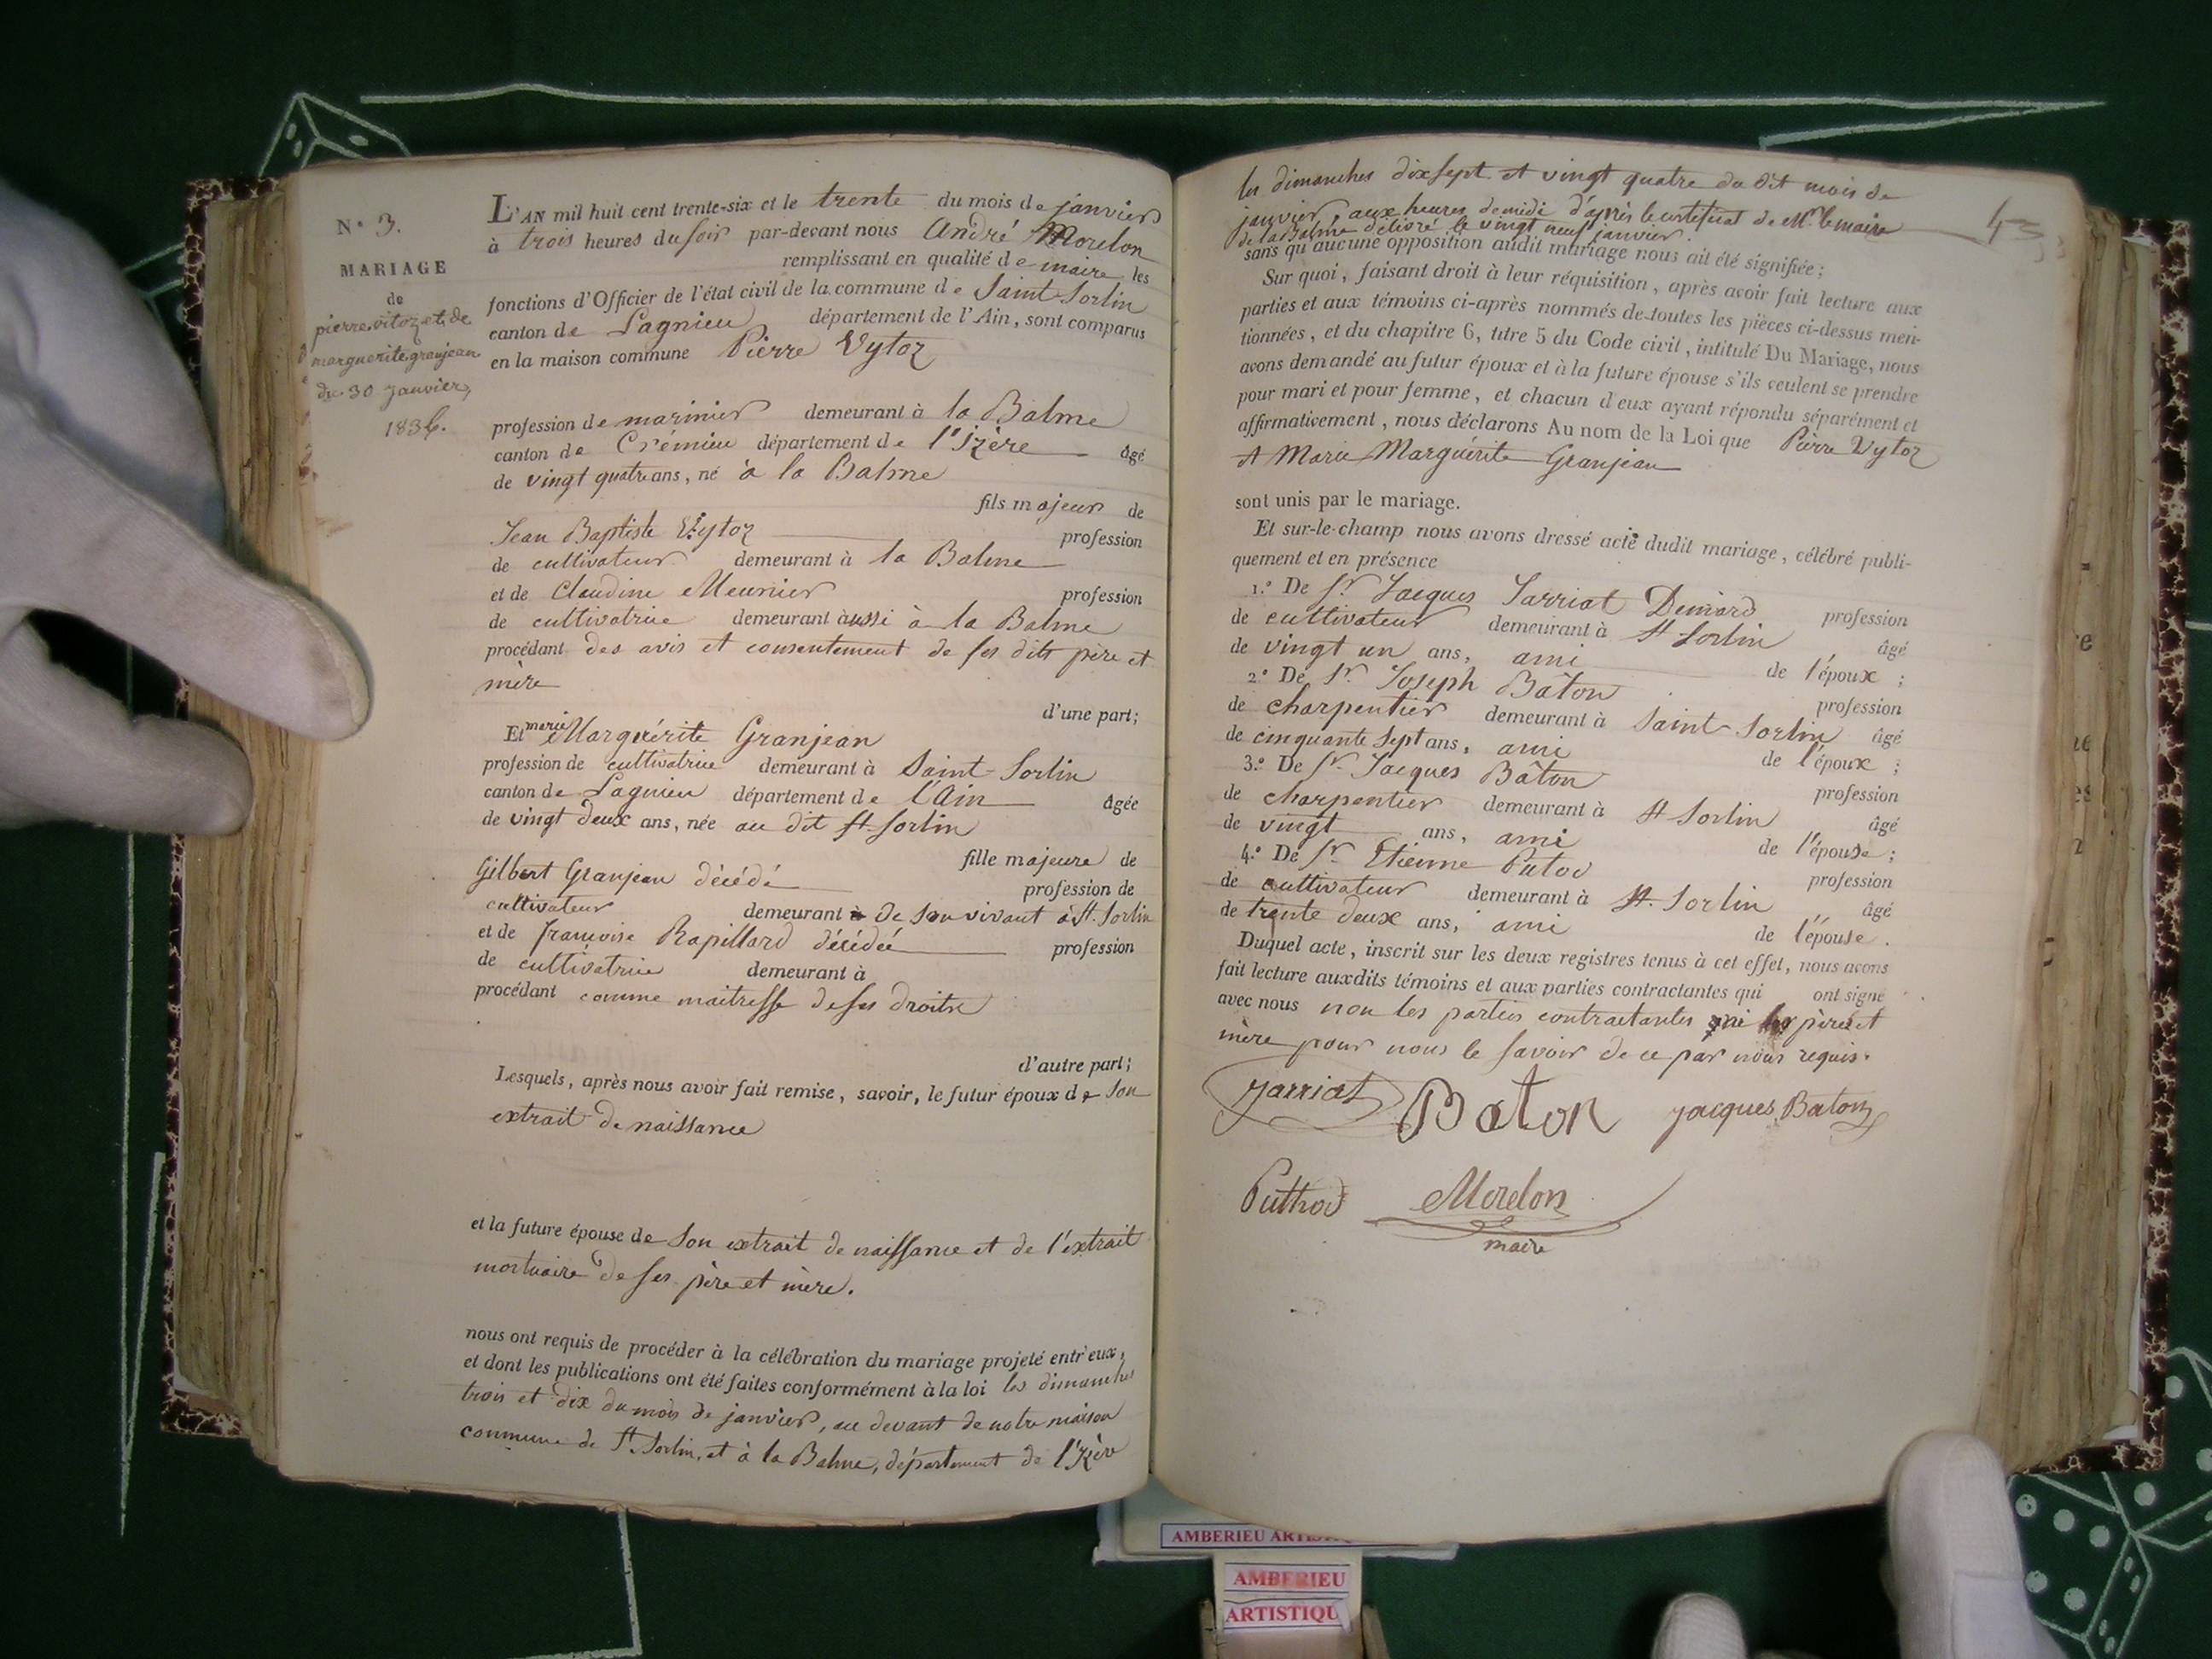 N.° 3.
MARIAGE
de
pierre vitoz et de
marguerite granjean
du 30 janvier
1836.
L'AN mil huit cent trente-six et le trente du mois de janvier
à trois heures du soir par-devant nous André Morelon
remplissant en qualité de maire les
fonctions d'Officier de l'état civil de la commune de Saint-Sorlin
canton de Lagnieu département de l'Ain, sont comparus
en la maison commune Pierre Vytoz
profession de marinier demeurant à la Balme
canton de Crémieu département de l'Izère âgé
de vingt quatre ans, né à la Balme
fils majeur de
Jean Baptiste Vytoz profession
de cultivateur demeurant à la Balme
et de Claudine Meunier profession
de cultivatrice demeurant aussi à la Balme
procédant des avis et consentement de ses dits père et
mère
d'une part;
Et marie Marguérite Granjean
profession de cultivatrice demeurant à Saint-Sorlin
canton de Lagnieu département de l'Ain âgée
de vingt deux ans, née au dit St-Sorlin
fille majeure de
Gilbert Granjean décédé profession de
cultivateur demeurant à de son vivant à St. Sorlin
et de françoise Rapillard décédée profession
de cultivatrice demeurant à
procédant comme maitresse de ses droits
d'autre part;
Lesquels, après nous avoir fait remise, savoir, le futur époux de son
extrait de naissance
et la future épouse de son extrait de naissance et de l'extrait
mortuaire de ses père et mère.
nous ont requis de procéder à la célébration du mariage projeté entr'eux,
et dont les publications ont été faites conformément à la loi les dimanches
trois et dix du mois de janvier, au devant de notre maison
commune de St. Sorlin, et à la Balme, département de l'Izère
43
les dimanches dix sept et vingt quatre du dit mois de
janvier, aux heures de midi d'après le certificat de Mr. le maire
de la Balme délivré le vingt neuf janvier.
sans qu'aucune opposition audit mariage nous ait été signifiée;
Sur quoi, faisant droit à leur réquisition, après avoir fait lecture aux
parties et aux témoins ci-après nommés de toutes les pièces ci-dessus men-
tionnées, et du chapitre 6, titre 5 du Code civil, intitulé Du Mariage, nous
avons demandé au futur époux et à la future épouse s'ils veulent se prendre
pour mari et pour femme, et chacun d'eux ayant répondu séparément et
affirmativement, nous déclarons Au nom de la Loi que Pierre Vytoz
et Marie Marguérite Granjean
sont unis par le mariage.
Et sur-le-champ nous avons dressé acte dudit mariage, célébré publi-
quement et en présence
1.° De Sr. Jacques Jarriat profession
de cultivateur demeurant à St Sorlin âgé
de vingt un ans, ami de l'époux;
2.° De Sr. Joseph Bâton profession
de charpentier demeurant à Saint-Sorlin âgé
de cinquante sept ans, ami de l'époux;
3.° De Sr. Jacques Bâton profession
de charpentier demeurant à St Sorlin âgé
de vingt ans, ami de l'épouse;
4.° De Sr. Etienne Putod profession
de cultivateur demeurant à St. Sorlin âgé
de trente deux ans, ami de l'épouse.
Duquel acte, inscrit sur les deux registres tenus à cet effet, nous avons
fait lecture auxdits témoins et aux parties contractantes qui ont signé
avec nous non les parties contractantes ni les père et
mère pour nous le savoir de ce par nous requis.
Jarriat Baton jacques Baton
Puthod Morelon
maire
AMBERIEU
AMBERIEU
ARTISTIQU